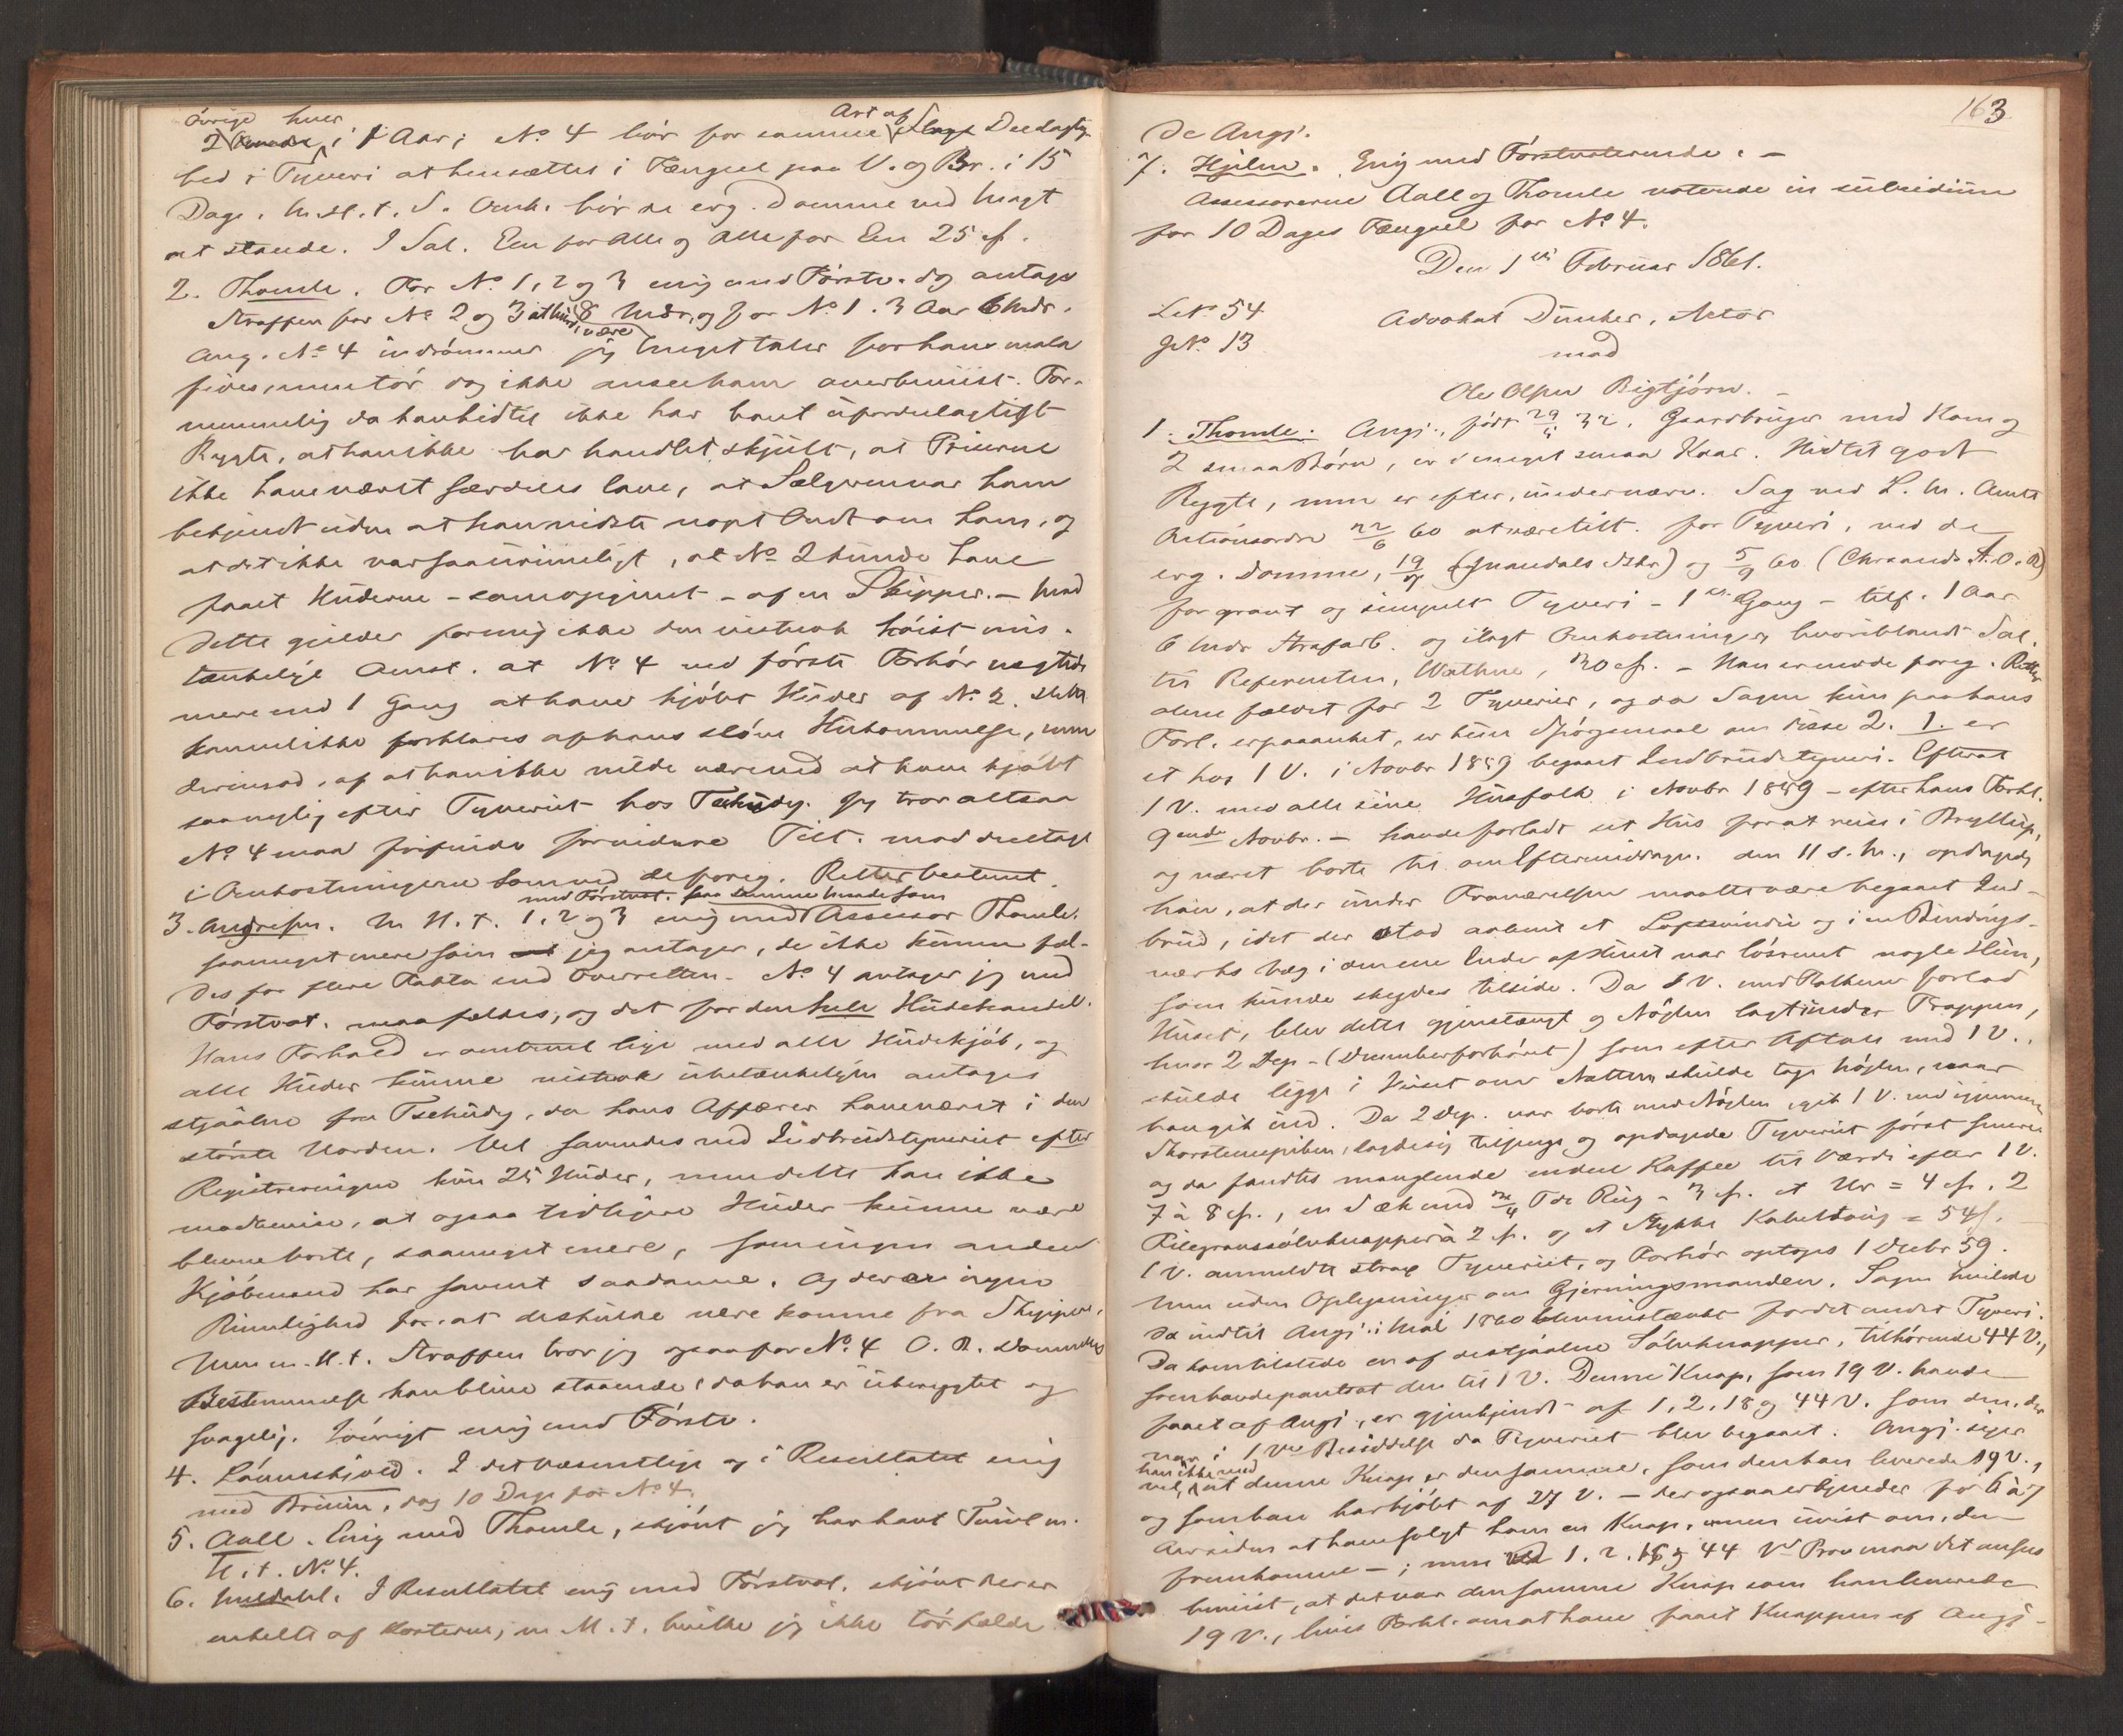 øvrige hver Art af
2 i 1 Aar; No 4 bør for samme Slags Deelagtig-
hed i Tyveri at hensættes i Fængsel paa V. og Br. i 15
Dage. M. H. t. S. Omk. bør de erg. Domme ved Magt
at stande. I Sal. Een for Alle og Alle for Een 25 sp.
2. Thomle. For No 1, 2 og 3 enig med Førstv. dog antages
Straffen for No 2 og 3 at burde være 8 Mdr. og for No 1. 3 Aar 6 Mdr.
Ang. No 4 indrømmer jeg Meget taler for hans mala
fides, men tør dog ikke ansee ham overbeviist. For-
nemmelig da han hidtil ikke har havt ufordelagtigt
Rygte, at han ikke har handlet skjult, at Priserne
ikke have været særdeles lave, at Sælgeren var ham
bekjendt uden at han vidste noget Ondt om ham, og
at det ikke var saa urimeligt, at No 2 kunde have
faaet Huderne - som opgivet - af en Skipper. - Mod
dette gjælder for mig ikke den vistnok høist mis-
tænkelige Omst. at No 4 ved første Forhør negtede
mere end 1 Gang at have kjøbt Huder af No 2. Dette
kan vel ikke forklares af hans sløve Hukommelse, men
derimod af at han ikke vilde være ved at have kjøbt
saa nylig efter Tyveriet hos Tschudy. Jeg tror altsaa
No 4 maa frifindes for videre Tilt. mod deeltagt
i Omkostningerne som ved de foreg. Retter bestemt
med Førstvot. paa samme Maade som
3. Andresen. M. H. t. 1, 2 og 3 enig med Assessor Thomle.
saameget mere som jeg antager, de ikke kunne fæl-
des for flere Fakta end Overretten. No 4 antager jeg med
Førstvot. maa fældes, og det for den hele Hudehandel.
Hans Forhold er omtrent lige med alle Hudekjøb, og
alle Huder kunne vistnok ubetænkeligen antages
stjaalne fra Tschudy, da hans Affærer have været i den
største Uorden. Vel savnedes ved Indbrudstyveriet efter
Registreringen kun 25 Huder, men dette kan ikke
modbevise, at ogsaa tidligere Huder kunne være
blevne borte, saameget mere, som ingen anden
Kjøbmand har savnet saadanne. Og der er ingen
Rimelighed for at de skulde være komne fra Skippere.
Men m. H. t. Straffen tror jeg ogsaa for No 4 O. R. Dommens
Bestemmelse kan blive staaende, da han er uberygtet og
svagelig. Iøvrigt enig med Førstv.
4. Lövenskjold. I det Væsentlige og i Resultatet enig
med Bruun, dog 10 Dage for No 4.
5. Aall. Enig med Thomle, skjønt jeg har havt Tvivl m.
H. t. No 4.
6. Meldahl. I Resultatet enig med Førstvot. skjønt der er
enkelte af Posterne, m. H. t. hvilke jeg ikke tør fælde
163
De Angj.
7. Hjelm. Enig med Førstvoterende. -
Assessorerne Aall og Thomle voterende in subsidium
for 10 Dages Fængsel for No 4.
Den 1ste Februar 1861.
L No 54
Advokat Dunker, Actor
J No. 13
mod
Ole Olsen Bigtjörn. -
1. Thomle. Angj., født 29/5 32, Gaardbruger med Kone og
2 smaa Børn, er i meget smaa Kaar. Hidtil godt
Rygte, men er efter, nedenværn. Sag ved L. M. Amts
Actionsordre 22/6 60 at være tilt. for Tyveri, ved de
erg. Domme, 19/7 (Mandals Sskr) og 5/9 60 (Chrsands St. O. R)
for grovt og simpelt Tyveri - 1ste Gang - tilf. 1 Aar
6 Mdr Strafarb. og ilagt Omkostninger, hvoriblandt Sal.
til Referenten, Wathne, 30 sp. - Han er ved de foreg. Retter
alene fældet for 2 Tyverier, og da Sagen kun paa hans
Forl. er paaanket, er kun Spørgsmaal om disse 2. 1. er
et hos 1 V. i Novbr 1859 begaaet Indbrudstyveri. Efterat
1 V. med alle sine Huusfolk i Novbr 1859 - efter hans Forkl.
9ende Novbr. - havde forladt sit Huus for at reise i Bryllup,
og været borte til om Eftermiddagen den 11 s. M., opdagede
han, at der under Fraværelsen maatte være begaaet Ind-
brud, idet der stod aabent et Loftsvindue og i en Bindings-
værks Væg i den ene Ende af Huset var løsrevet nogle Huun,
som kunde skydes tilside. Da 1 V. med Folkene forlod
Huset, blev dette gjenstængt og Nøglen lagt under Trappen,
hvor 2 Dep. - (Decemberforhøret) som efter Aftale med 1 V.,
skulde ligge i Huset om Natten, skulde tage Nøglen, naar
han gik ind. Da 2 Dep. var borte med Nøglen, gik 1 V. ind igjennem
Skorsteenspiben, lagde sig tilsengs og opdagede Tyveriet først senere
og da fandtes manglende endeel Kaffee til Værdi efter 1 V.
7 à 8 sp., en Sæk med 3/4 Tde Rug = 3 sp. et Uhr = 4 sp. 2
Filegranssølvknapper à 2 sp. og et Stykke Kabeltoug = 54 s.
1 V. anmeldte strax Tyveriet, og Forhør optoges 1 Decbr 59.
Men uden Oplysninger om Gjerningsmanden. Sagen hvilede
da indtil Angj. i Mai 1860 blev mistænkt for det andet Tyveri.
Da kom tilstede en af de stjaalne Sølvknapper, tilhørende 44 V.,
som havde pantsat den til 1 V. Denne Knap, som 19 V. havde
faaet af Angj., er gjenkjendt af 1, 2, 18 og 44 V. som den, der
var i 1 Vs Besiddelse da Tyveriet blev begaaet. Angj. siger
vel, han ikke ved at denne Knap er densamme, som den han leverede 19 V.,
og som han har kjøbt af 27 V. - der ogsaa erkjender for 6 à 7
Aar siden at have solgt ham en Knap, men uvist om, den
fremkomne -; men ved 1. 2. 18 og 44 Vs Prov maa det ansees
beviist, at det var densamme Knap som han leverede
19 V., hvis Forkl. om at have faaet Knappen af Angj.